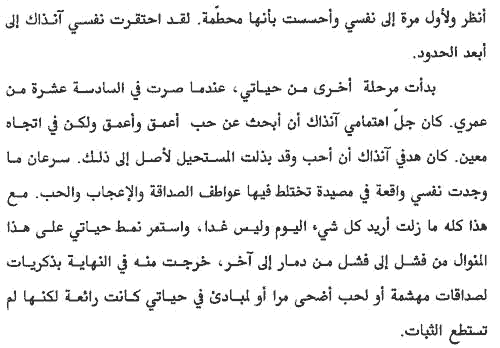 أنظر ولأول مرة إلى نفسي وأحسست بأنها محطّمة. لقد احتقرت نفسي آنذاك إلى
أبعد الحدود.
بدأت مرحلة أخرى من حياتي، عندما صرت في السادسة عشرة من
عمري. كان جلّ اهتمامي آنذاك أن أبحث عن حب أعمق وأعمق ولكن في اتجاه
معين. كان هدفي آنذاك أن أحب وقد بذلت المستحيل لأصل إلى ذلك. سرعان ما
وجدت نفسي واقعة في مصيدة تختلط فيها عواطف الصداقة والإعجاب والحب. مع
هذا كله ما زلت أريد كل شيء اليوم وليس غدا، واستمر نمط حياتي على هذا
المنوال من فشل إلى فشل من دمار إلى آخر، خرجت منه في النهاية بذكريات
لصداقات مهشمة أو لحب أضحى مرا أو لمبادئ في حياتي كانت رائعة لكنها لم
تستطع الثبات.